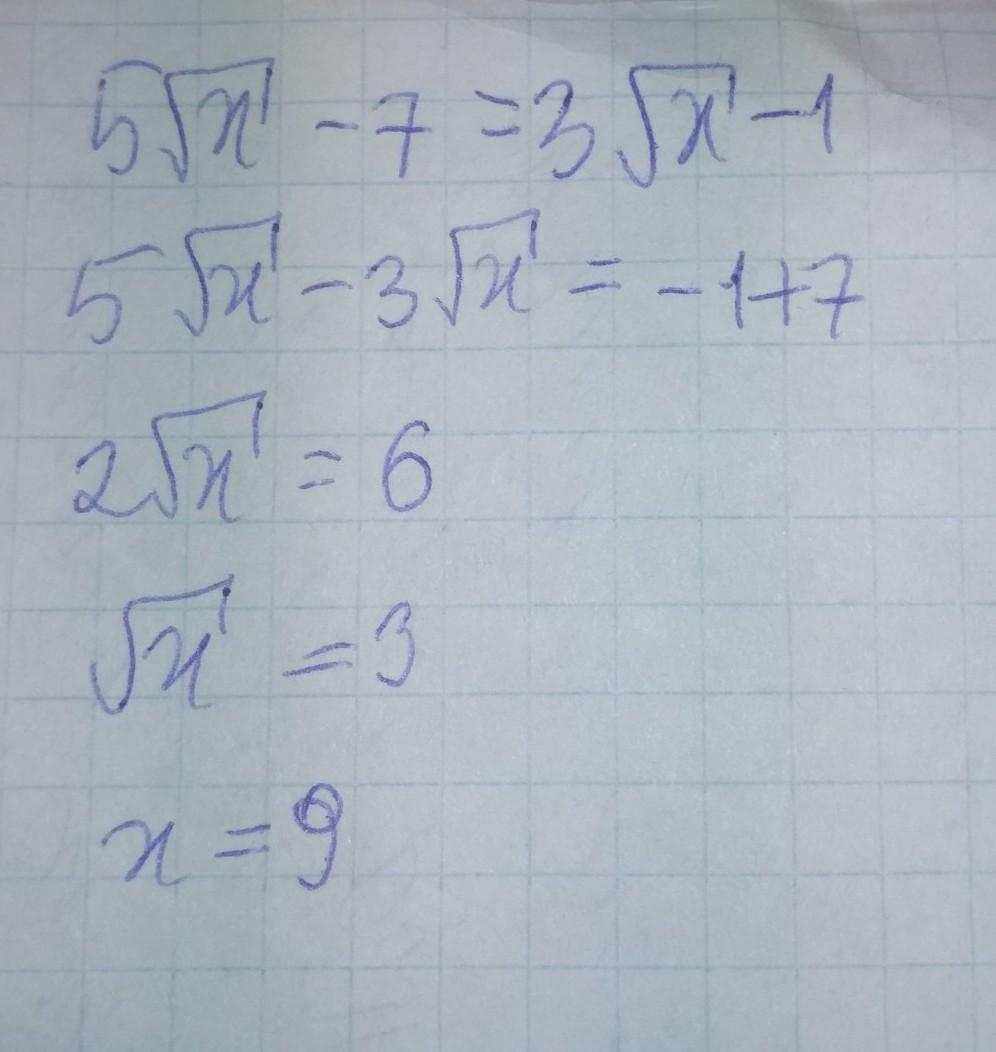 5√x - 7 = 3√x - 1
5√x - 3√x = -1+7
2√x = 6
√x = 3
x = 9